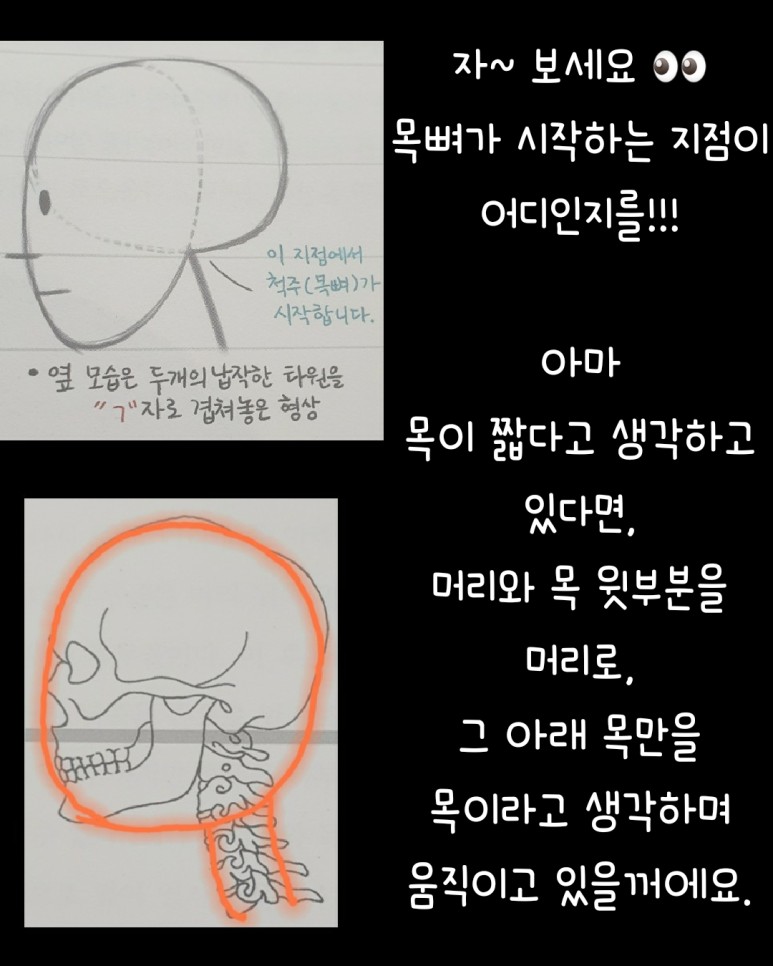 자~ 보세요 👀
목뼈가 시작하는 지점이
어디인지를!!!
아마
목이 짧다고 생각하고
있다면,
머리와 목 윗부분을
머리로,
그 아래 목만을
목이라고 생각하며
움직이고 있을꺼에요.
이 지점에서
척주(목뼈)가
시작합니다.
• 옆 모습은 두개의 납작한 타원을
"ㄱ"자로 겹쳐놓은 형상